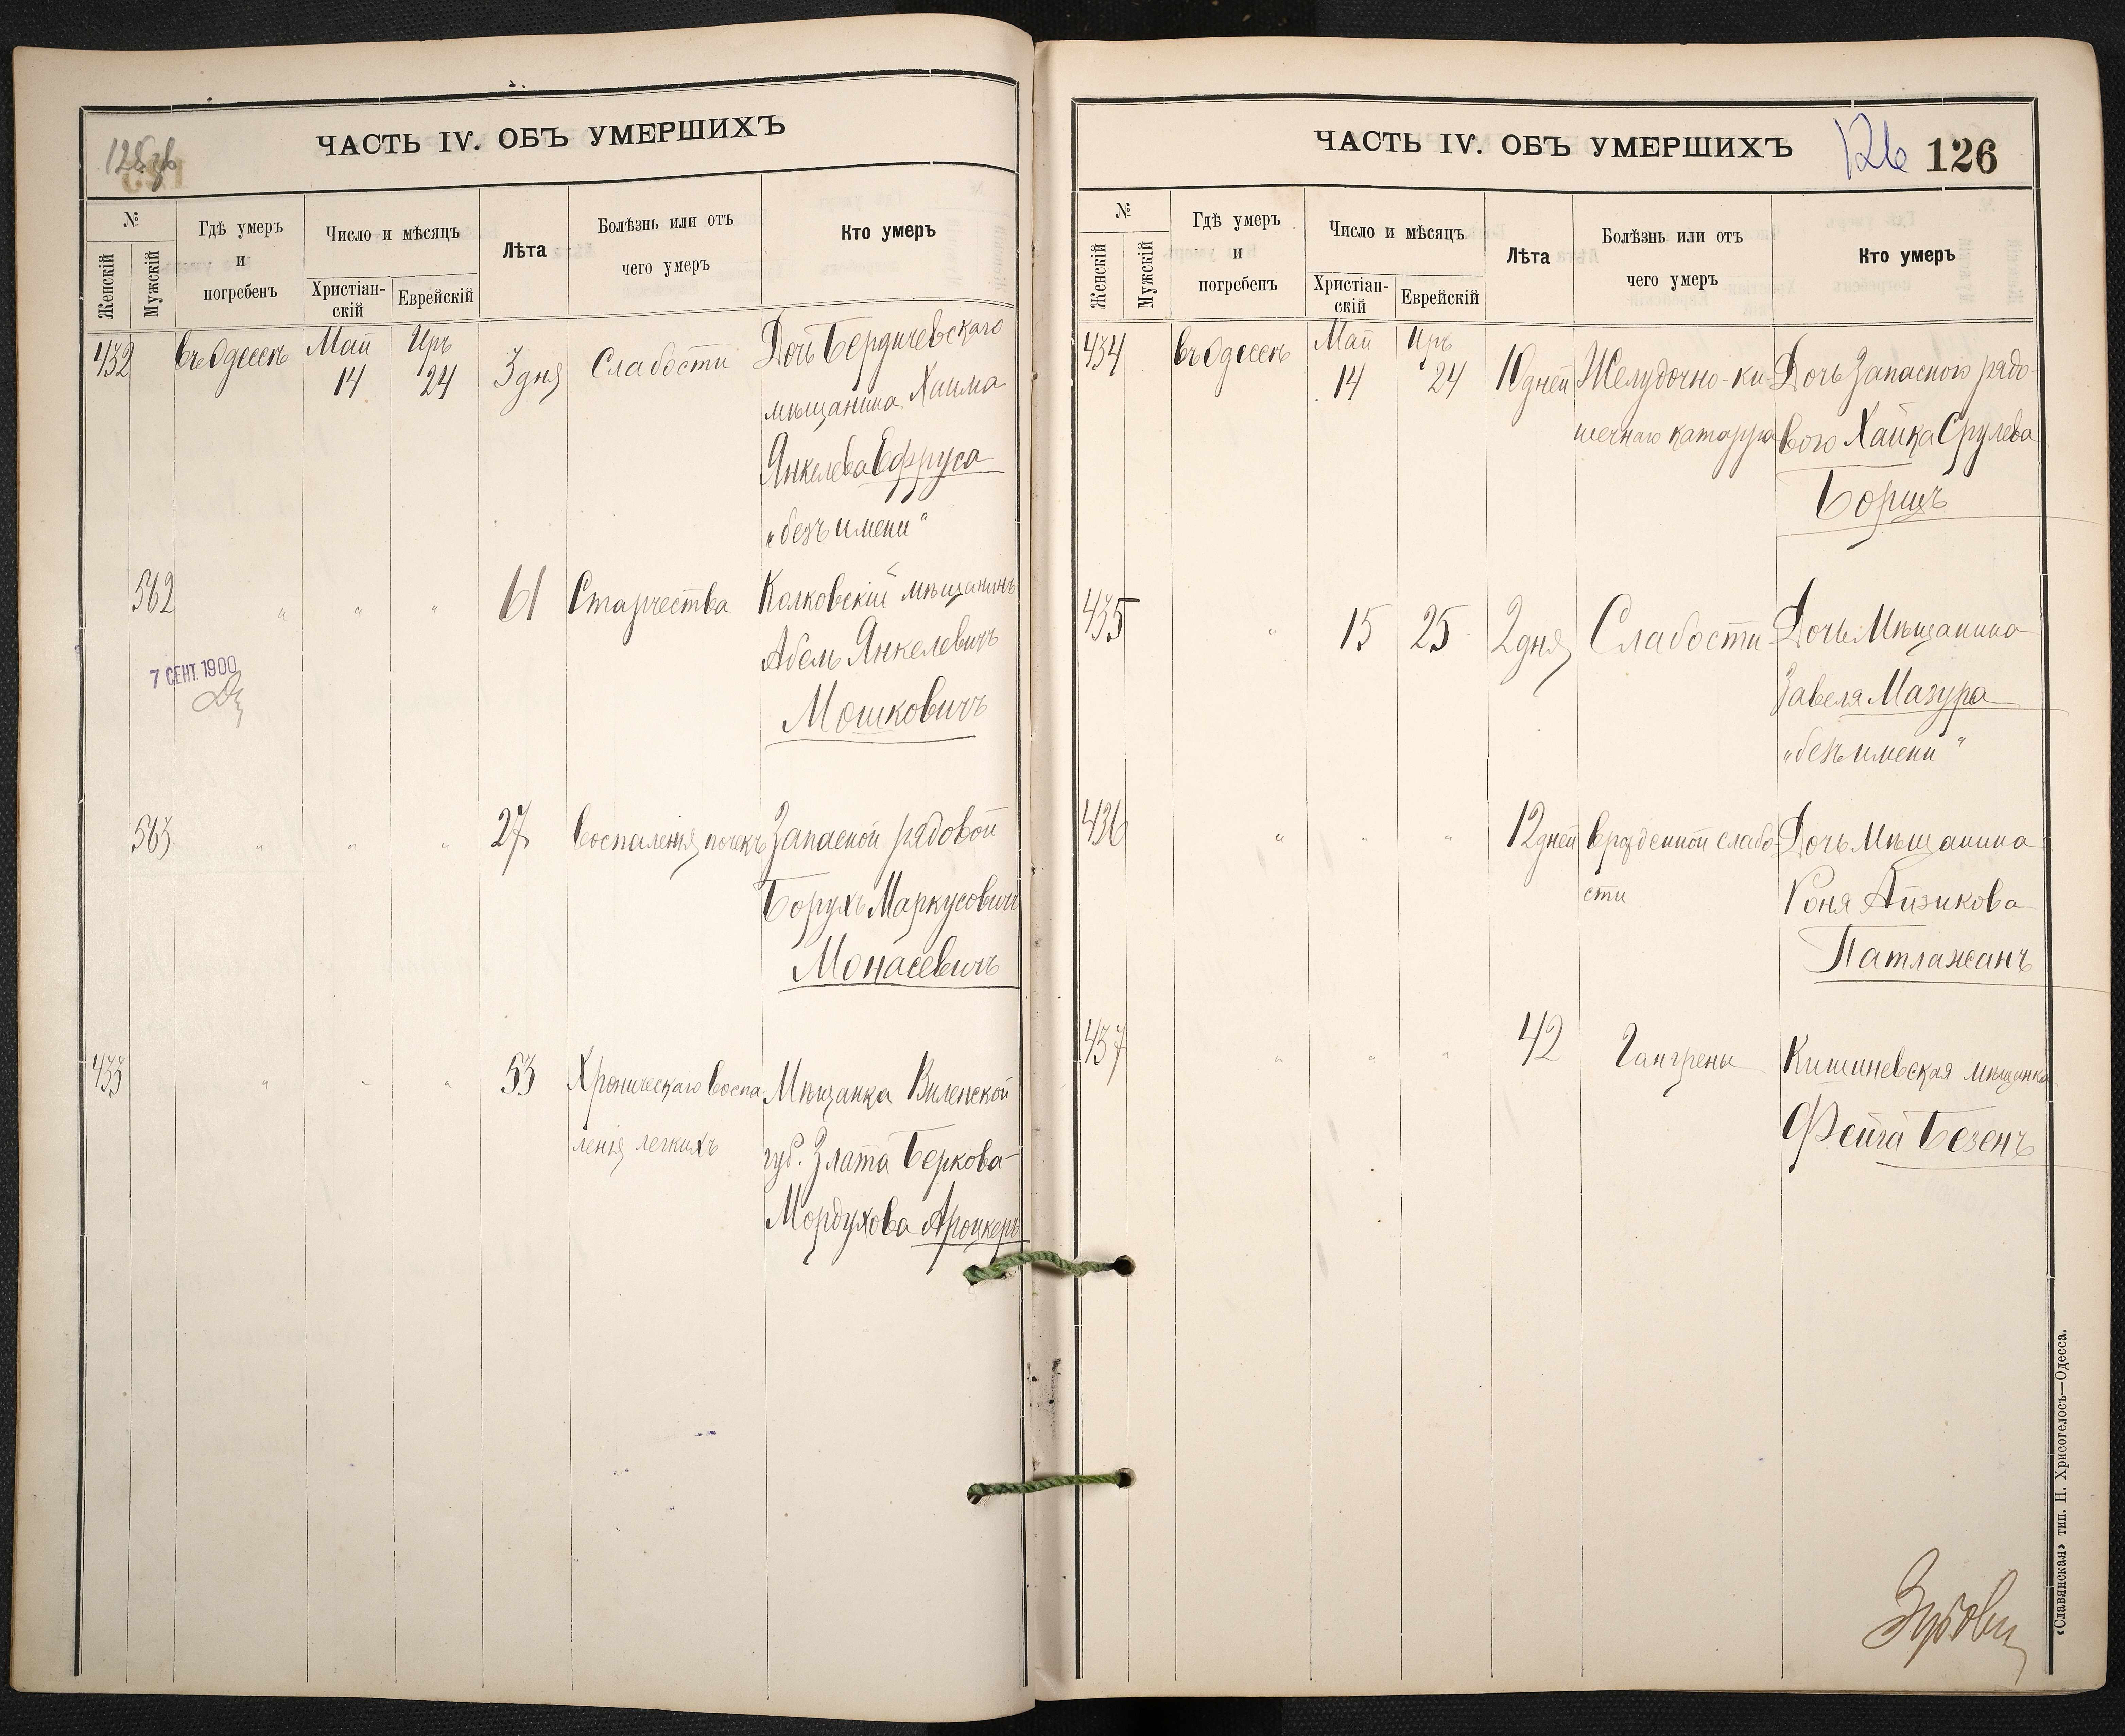 ЧАСТЬ IV. ОБЪ УМЕРШИХЪ
№
Женскій
Мужскій
Гдѣ умеръ
и
погребенъ
Число и мѣсяцъ
Христіан-
скій
Еврейскій
Лѣта
Болѣзнь или отъ
чего умеръ
Кто умеръ
432
въ Одессѣ
Май
14
Иръ
24
3 дня
Слабости
Дочь Бердичевскаго
мѣщанина Хаима
Янкелева Ефруса
„безъ имени“
562
"
"
"
61
Старчества
Колковскій мѣщанинъ
Абель Янкелевичъ
Мошковичъ
7 СЕНТ. 1900
563
"
"
"
27
Воспаленія почекъ
Запасной рядовой
Борухъ Маркусовичъ
Монасевичъ
433
"
"
"
53
Хроническаго воспа-
ленія легкихъ
Мѣщанка Виленской
губ. Злата Беркова-
Мордухова
ЧАСТЬ IV. ОБЪ УМЕРШИХЪ
126 126
№
Женскій
Мужскій
Гдѣ умеръ
и
погребенъ
Число и мѣсяцъ
Христіан-
скій
Еврейскій
Лѣта
Болѣзнь или отъ
чего умеръ
Кто умеръ
434
въ Одессѣ
Май
14
Иръ
24
10 дней
Желудочно-ки-
шечнаго катарра
Дочь Запасного рядо-
вого Хайка Срулева
Борщъ
435
"
15
25
2 дня
Слабости
Дочь Мѣщанина
Завеля Мазура
„безъ имени“
436
"
"
"
12 дней
Врожденной слабо-
сти
Дочь Мѣщанина
Роня Айзикова
Патлажанъ
437
"
"
"
42
Гангрены
Кишиневская мѣщанка
Фейга Безенъ
«Славянская» тип. Н. Хрисогелосъ—Одесса.